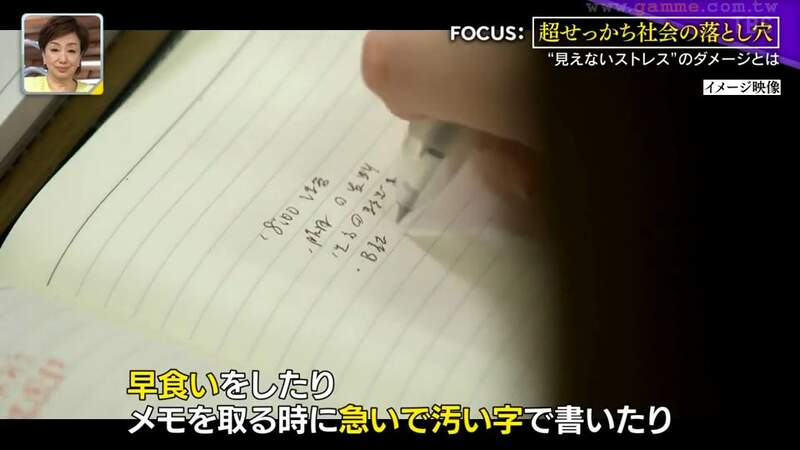 www.gamme.com.tw
FOCUS: 超せっかち社会の落とし穴
“見えないストレス”のダメージとは
イメージ映像
早食いをしたり
メモを取る時に急いで汚い字で書いたり